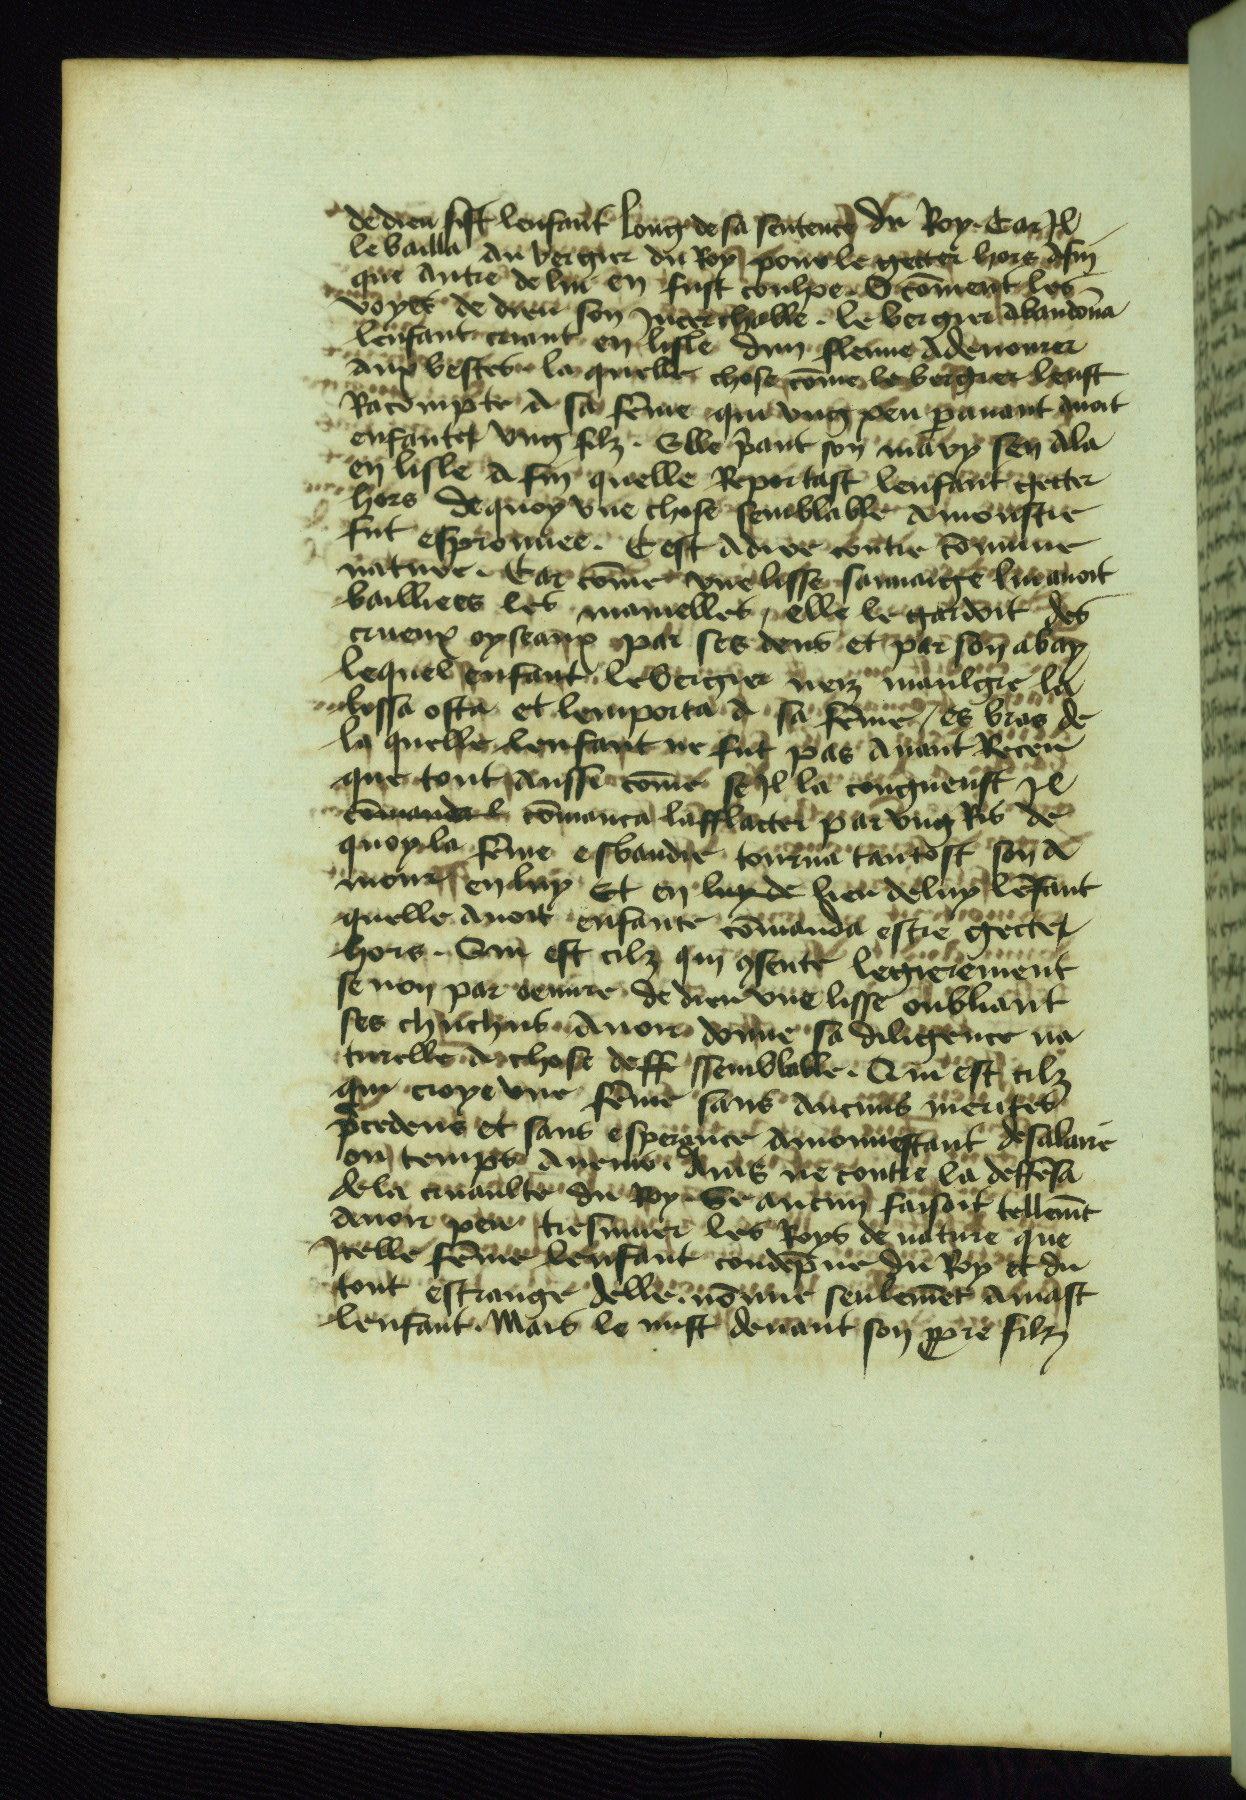 de dieu fist lenfant long de sa sentence du Roy. Car Jl
le bailla au bergier du Roy pour le getter hors Afin
que autre de lui en fust coulpe. O cōment les
voyes de dieu son Jncerchable. le bergier abandōna
lenfant criant en lisle dun fleuue A deuourer
aux bestes. la quelle chose cōme le bergier leust
Racompte A sa fēme qui vng peu pauant auoit
enfantet vng filz. Elle pāant son mary sen ala
en lisle A fin quelle Reportast lenfant getter
hors de quoy vne chose semblable A monstre
fut esprouuee. Cest A dire contre cōmune
nature. Car cōme vne lisse sauuaige lui auoit
bailliees les mamelles, elle le gardoit des
crueux oyseaux par ses dens et par son abay
lequel enfant le bergier uenz maulgre la
lissa osta et lemporta A sa fēme / es bras de
la quelle lenfant ne fut pas Auant Receu
que tout Ausse cōme se Jl la congneust Jl
cōmanda l cōmanca lafflatter par vng Ris de
quoy la fēme esbaudie tourna tantost son A
mour en luy Et en luy de lieu de luy lēfant
quelle Auoit enfante cōmanda estre gectet
hors. Qui est cilz qui 9sente legierement
se non par oeuure de dieu vne lisse oubliant
ses chuchus Auoir donne sa diligence na
turelle A chose deff ssemblable. Qui est cilz
qui croye vne fēme sans Aucuns merites
p̄cedens et sans esperance Amonnestant de salaire
ou temps Auenir. Ains ne contre la deffēsa
de la cruaulte du Roy. Se aucun faisoit tellemēt
Auoir peu tresmuer les Roys de nature que
Jcelle fēme lenfant condēpne du Roy et du
tout estrange delle. nōnne seulemēt Amast
lenfant. Mais le mist deuant son ppre filz